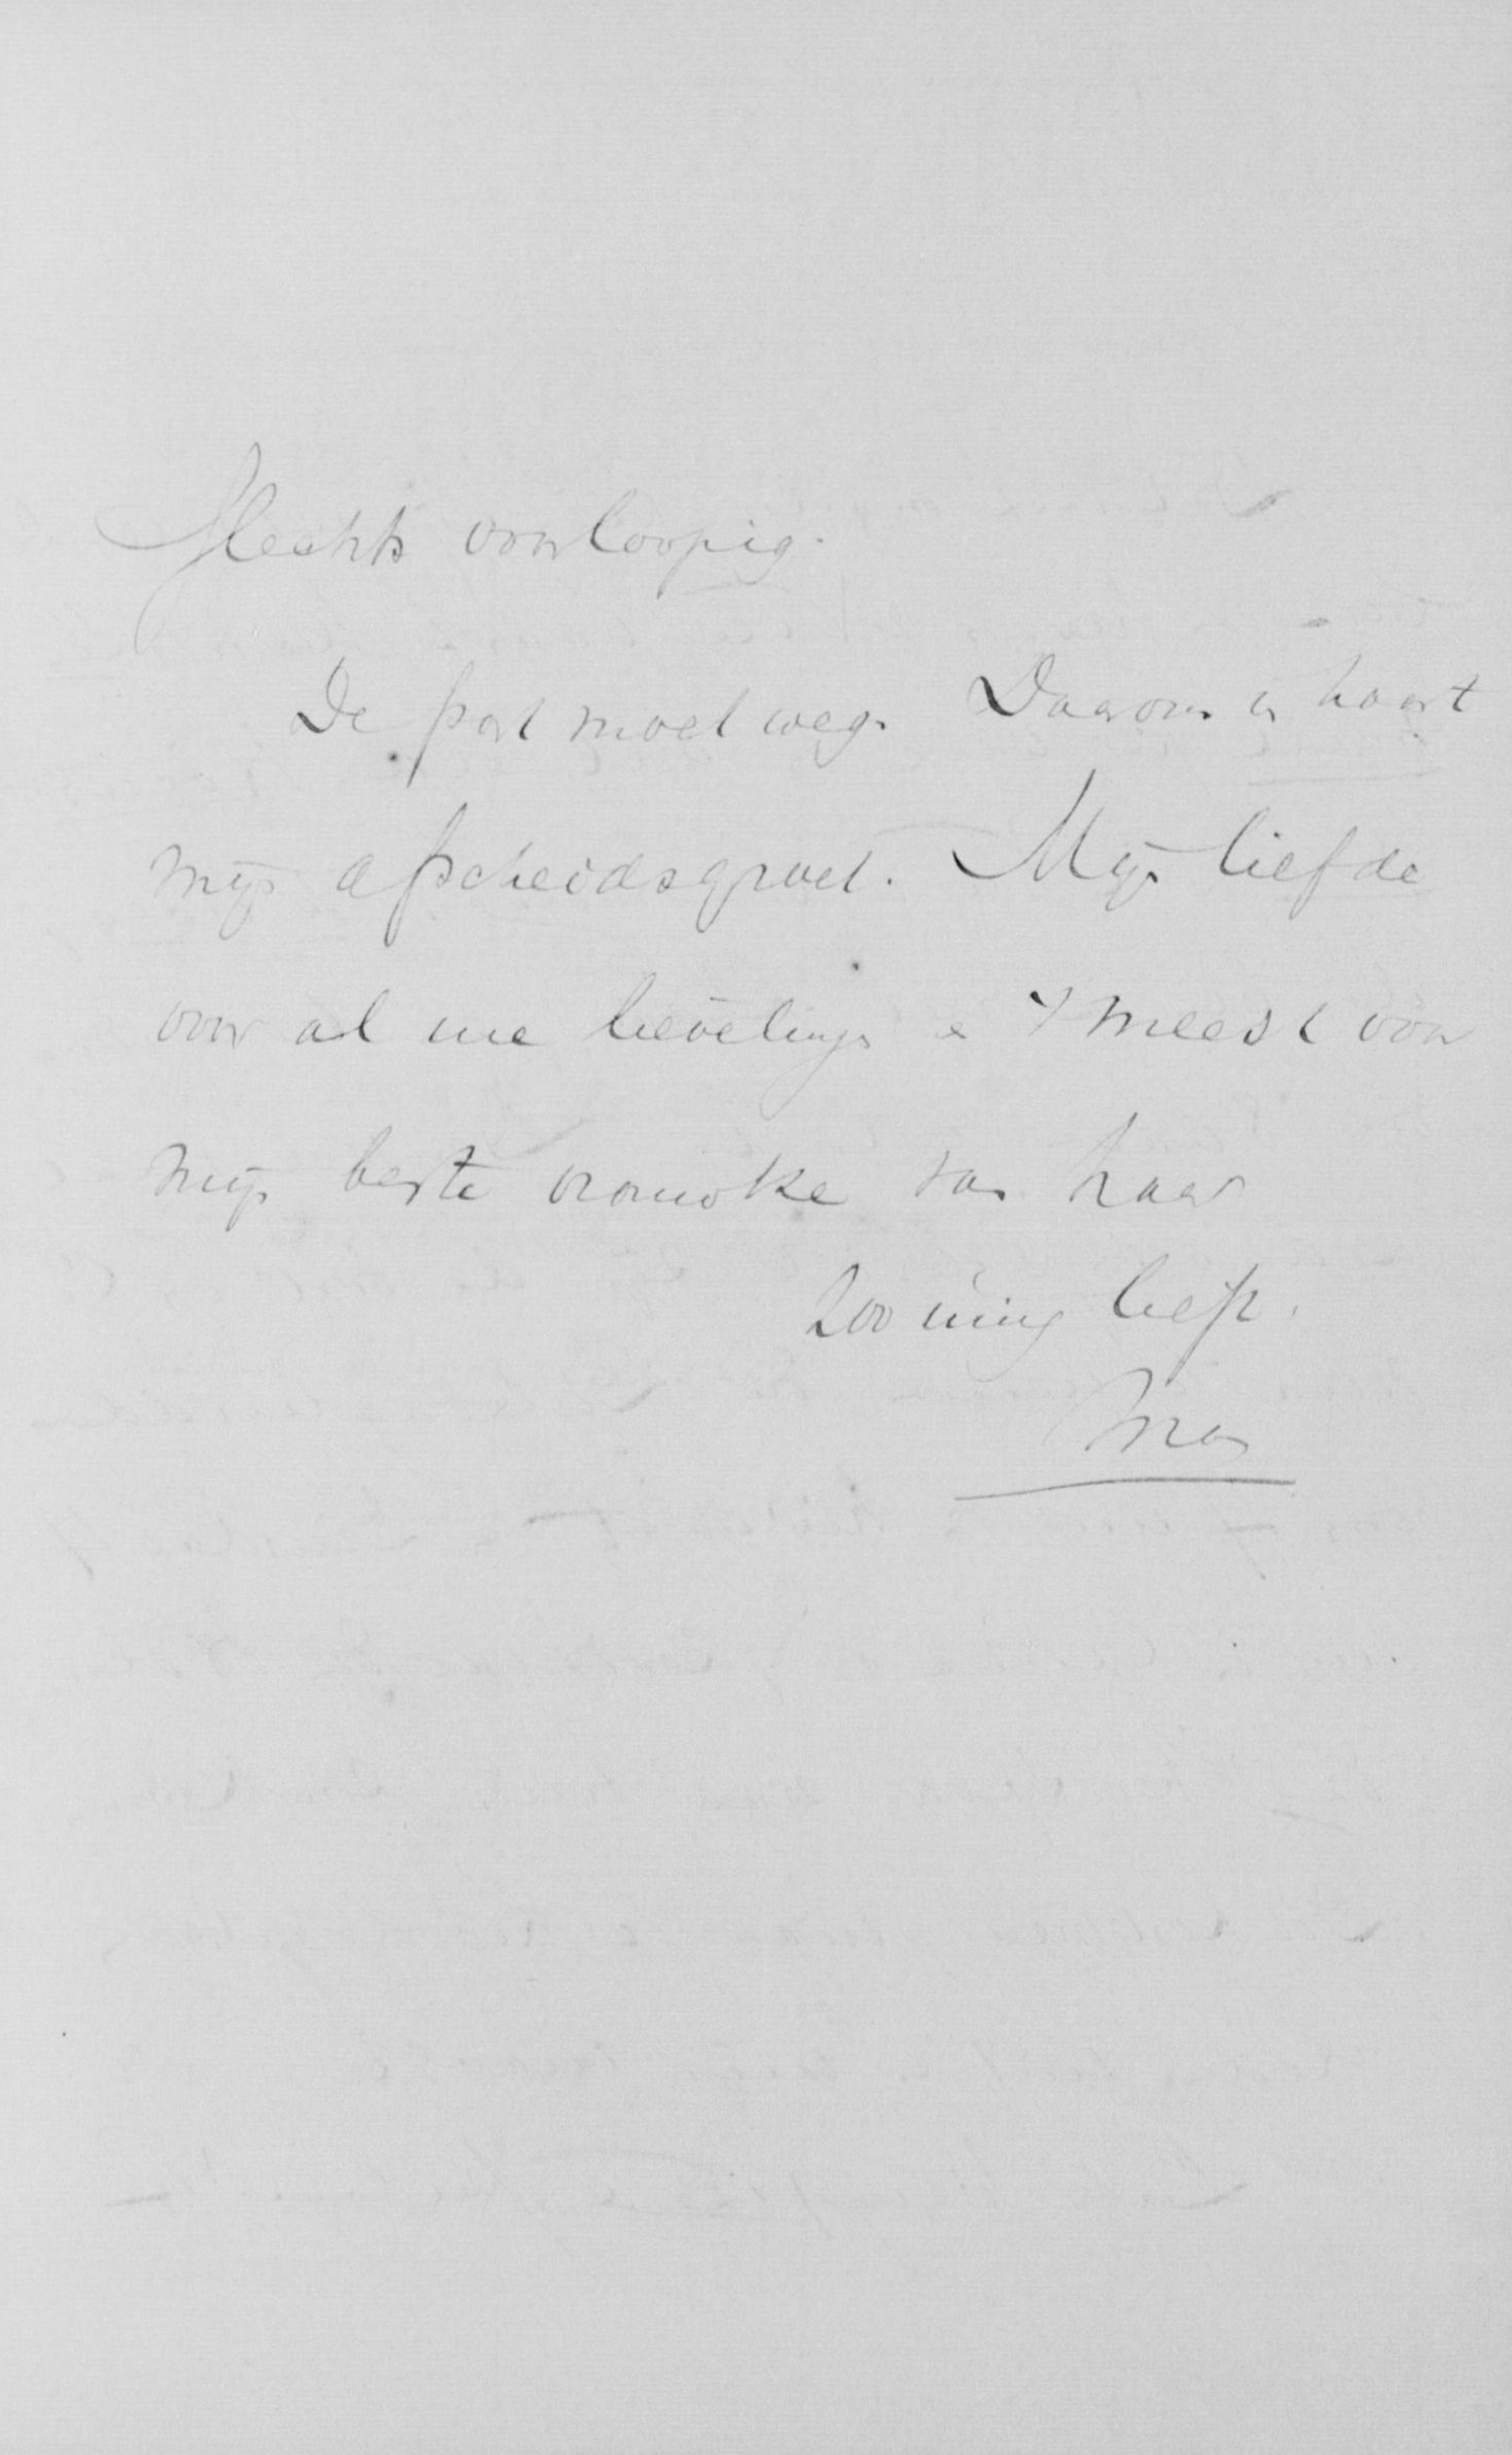 Slechts voorloopig.
De post moet weg. Daarom in haast
mijn afscheidsgroet. Mijn liefde
voor al me lievelingen & 't meest voor
mijn beste vrouwke van haar
zoo innig liefh.
Man